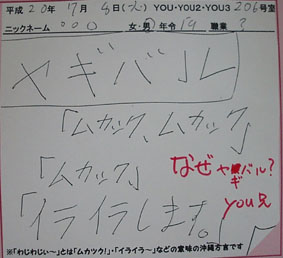 平成20年17月8日(火) YOU・YOU2・YOU3 206号室
ニックネーム ○○○ 女・男 年令19 職業?
ヤギバル
「ムカック、ムカック」
「ムカック」
なぜヤ 
バル?
ギ
you兄
「イライラします。」
※「わじわじぃ~」とは「ムカツク!」・「イライラ~」などの意味の沖縄方言です